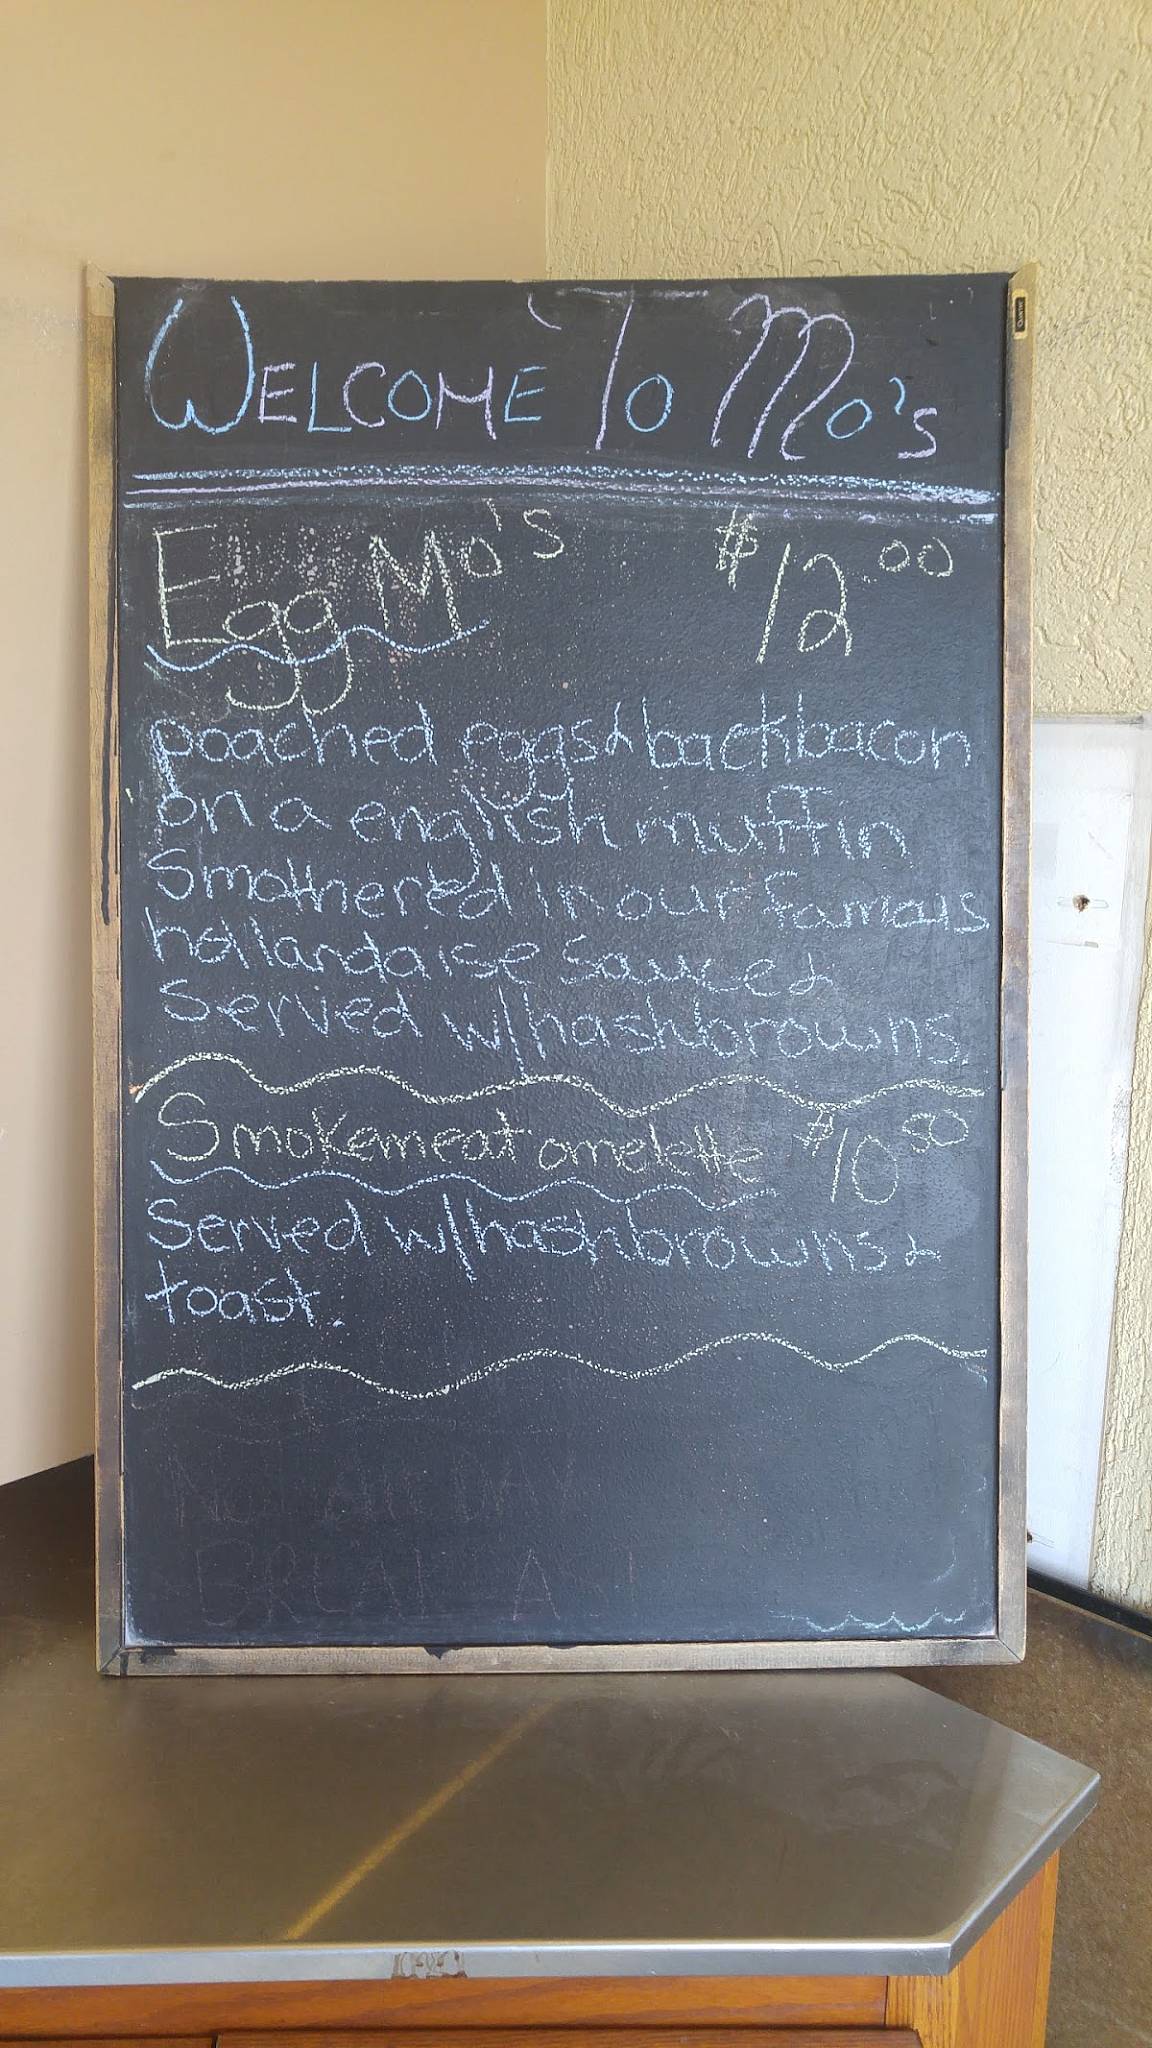 WELCOME TO MO'S
Egg Mo's $12.00
poached eggs & backbacon
on a english muffin
Smothered in our famous
hollandaise sauce &
Served w/hashbrowns.
Smokemeat omelette $10.50
Served w/hashbrowns &
toast.